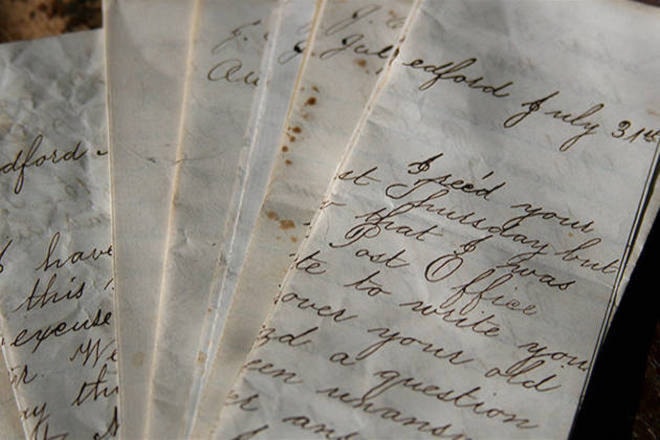 dford
have
this
excuse
r. We
y th
J.
Au
J.
Jul
edford July 31st
I rec'd your
st Thursday but
that I was
Post Office
te to write you
over your old
nd a question
een unans
er and